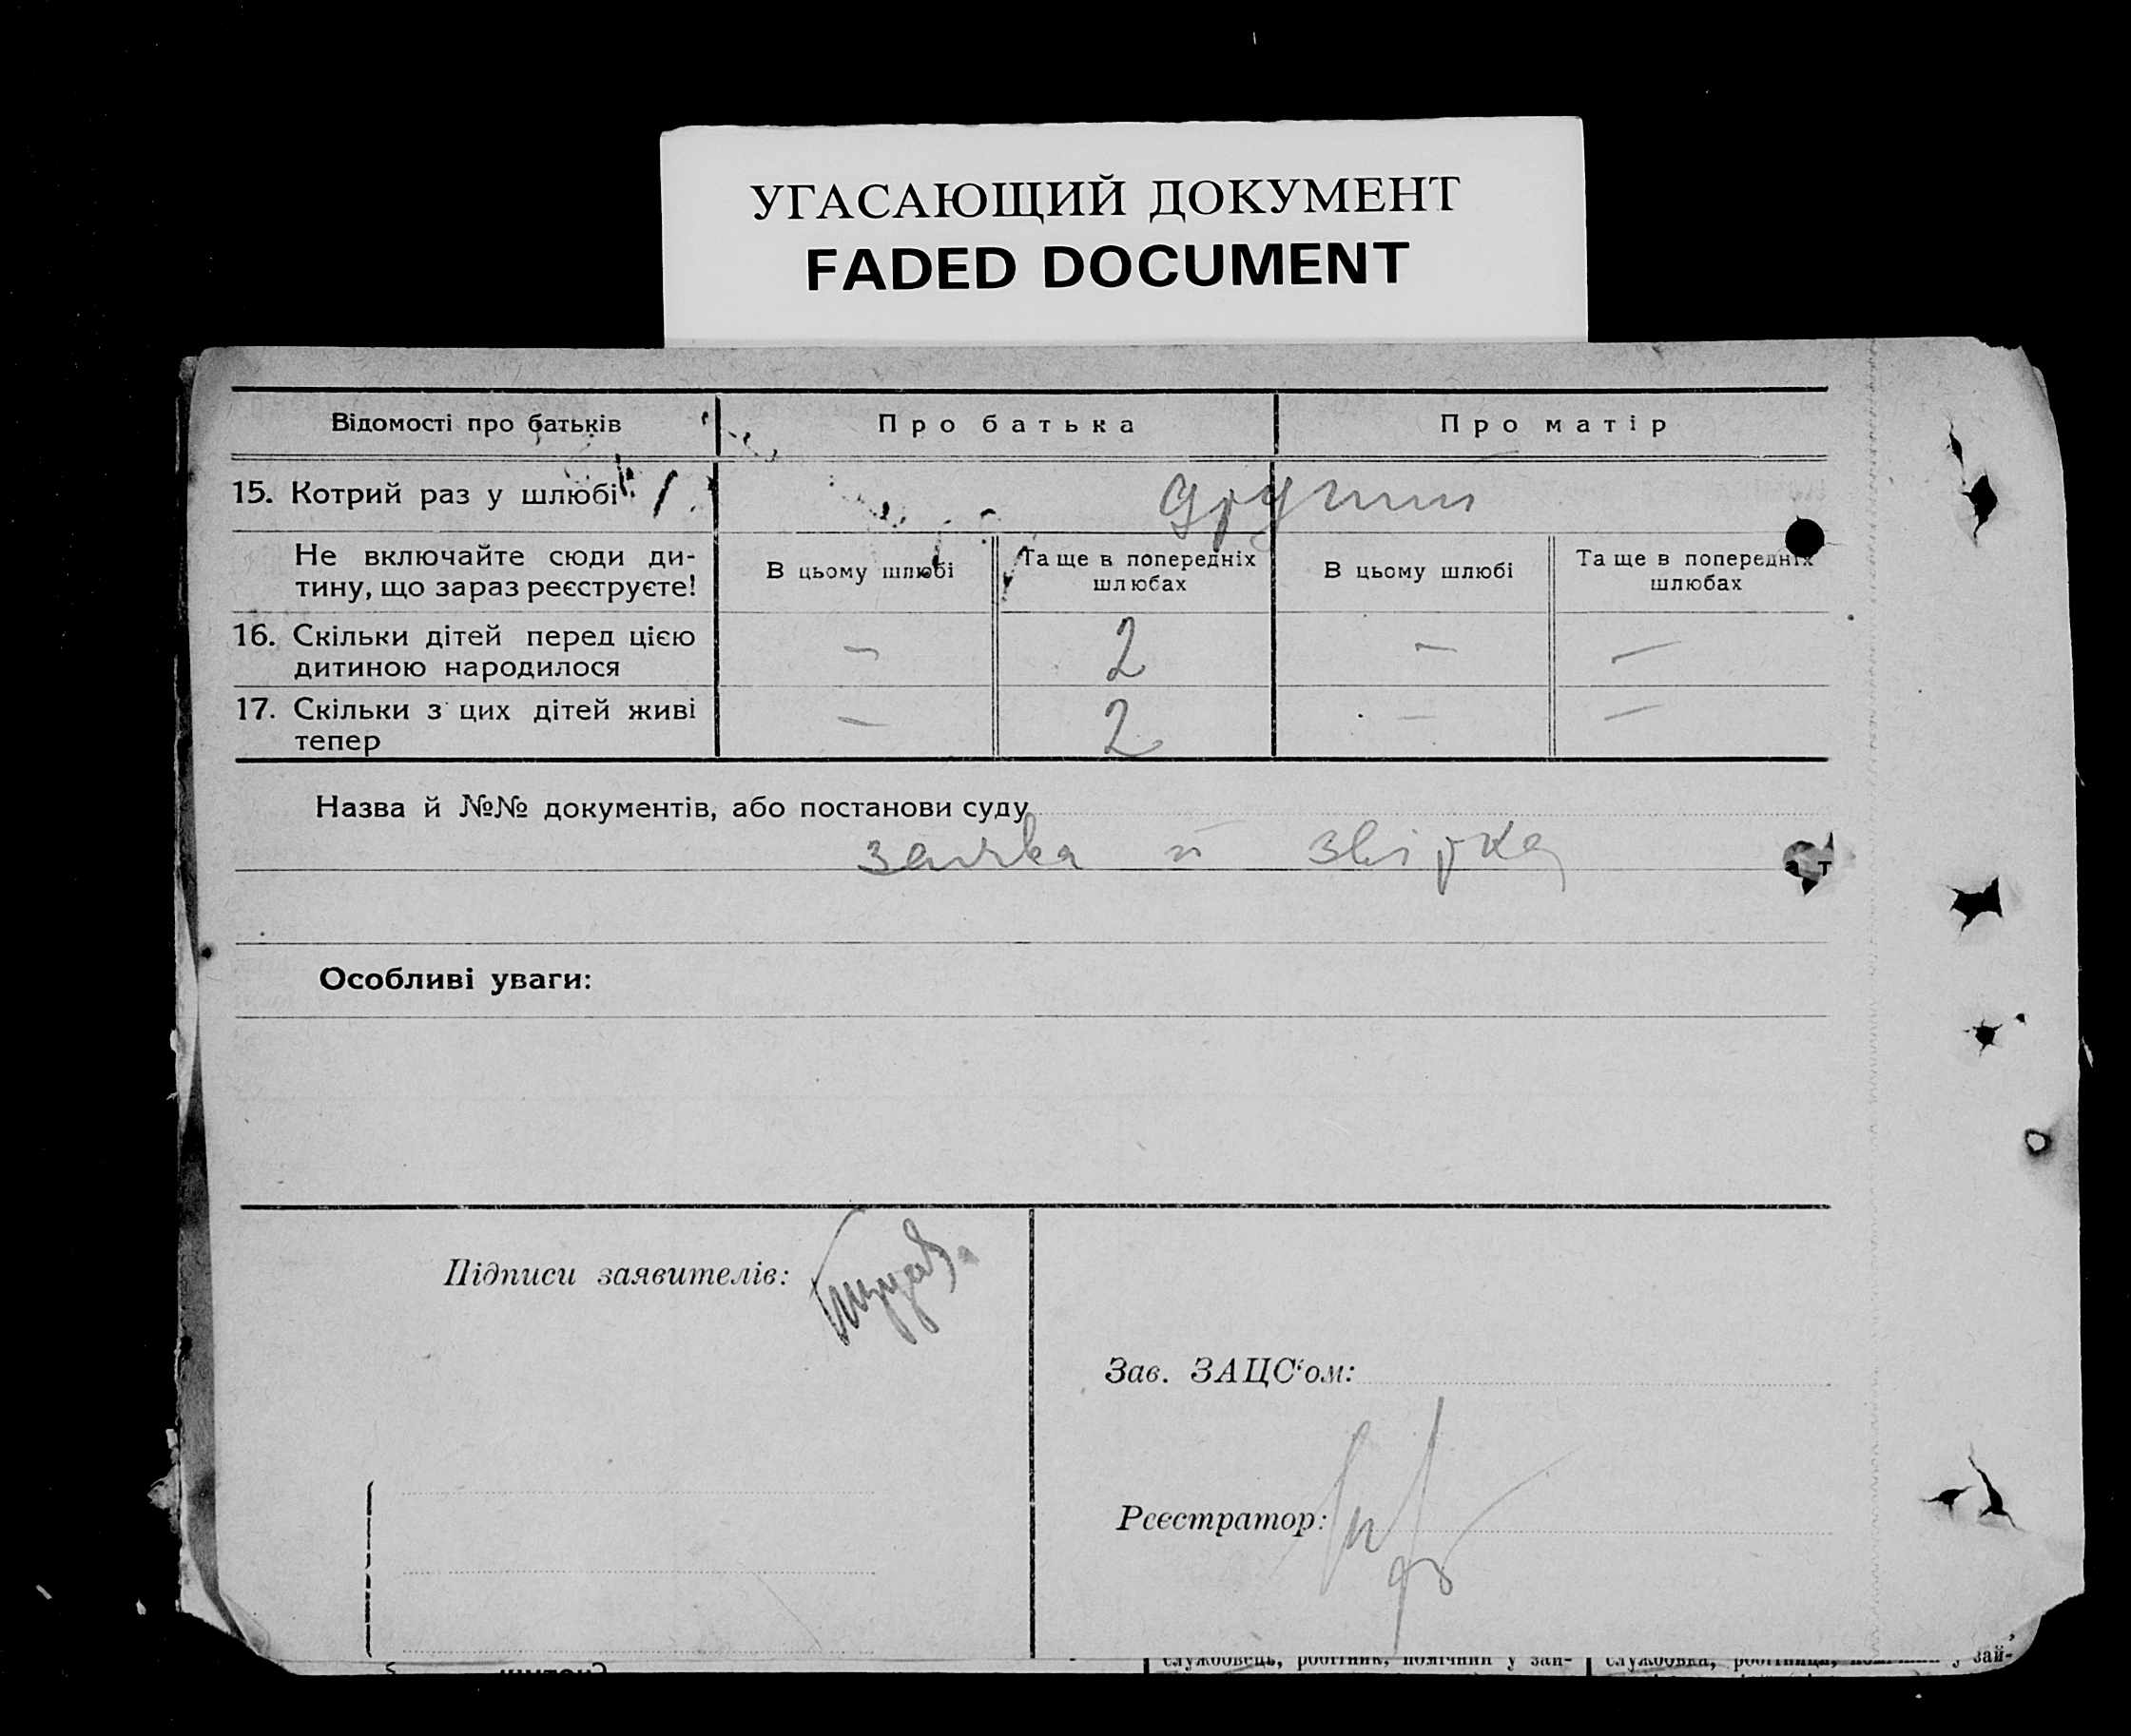 УГАСАЮЩИЙ ДОКУМЕНТ
FADED DOCUMENT
Відомості про батьків
Про батька
Про матір
15. Котрий раз у шлюбі
другий
Не включайте сюди ди-
тину, що зараз реєструєте!
В цьому шлюбі
Та ще в попередніх
шлюбах
В цьому шлюбі
Та ще в попередніх
шлюбах
16. Скільки дітей перед цією
дитиною народилося
—
2
—
—
17. Скільки з цих дітей живі
тепер
—
2
—
—
Назва й №№ документів, або постанови суду
заява й звірка
Особливі уваги:
Підписи заявителів:
Зав. ЗАЦС'ом:
Реєстратор:
службовець, робітник, помічний у зай-
службовка, робітниця, у зай-